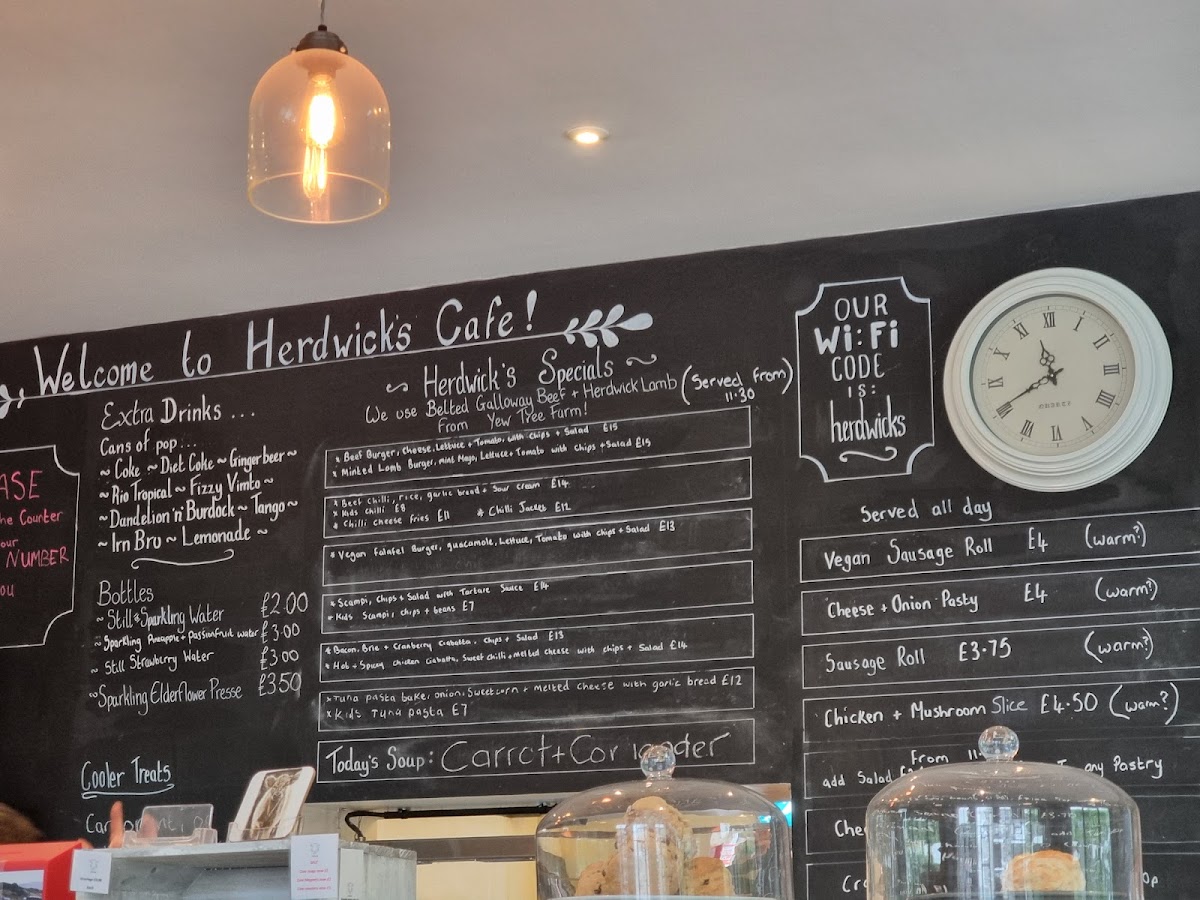 Welcome to Herdwick's Cafe!
ASE
he Counter
our
NUMBER
ou
Extra Drinks ...
Cans of pop:...
~ Coke ~ Diet Coke ~ Ginger beer ~
~ Rio Tropical ~ Fizzy Vimto ~
~ Dandelion 'n' Burdock ~ Tango ~
~ Irn Bru ~ Lemonade ~
Bottles
~ Still & Sparkling Water £2.00
~ Sparkling Pineapple + Passionfruit water £3.00
~ Still Strawberry Water £3.00
~ Sparkling Elderflower Presse £3.50
Cooler Treats
~ Herdwick's Specials ~
We use Belted Galloway Beef + Herdwick Lamb
From Yew Tree Farm!
(Served from)
11.30
* Beef Burger, cheese, Lettuce + Tomato, with chips + Salad £15
* Minted Lamb Burger, mint Mayo, Lettuce + Tomato with chips + Salad £15
* Beef chilli, rice, garlic bread + Sour cream £14
* Kids chilli £8
* Chilli cheese fries £11 * Chilli Jacket £12
* Vegan falafel Burger, guacamole, Lettuce, Tomato with chips + Salad £13
* Scampi, chips + Salad with Tartare Sauce £14
* Kids Scampi, chips + beans £7
* Bacon, Brie + Cranberry Ciabatta. chips + Salad £13
* Hot + Spicy chicken Ciabatta, Sweet chilli + melted cheese with chips + Salad £14
* Tuna pasta bake, onion, Sweetcorn + melted cheese with garlic bread £12
* Kids Tuna pasta £7
Today's Soup: Carrot + Coriander
OUR
Wi:Fi
CODE
is:
herdwicks
XII I II III IIII V VI VII VIII IX X XI
Served all day
Vegan Sausage Roll £4 (warm?)
Cheese + Onion Pasty £4 (warm?)
Sausage Roll £3.75 (warm?)
Chicken + Mushroom Slice £4.50 (warm?)
From 11
add Salad any Pastry